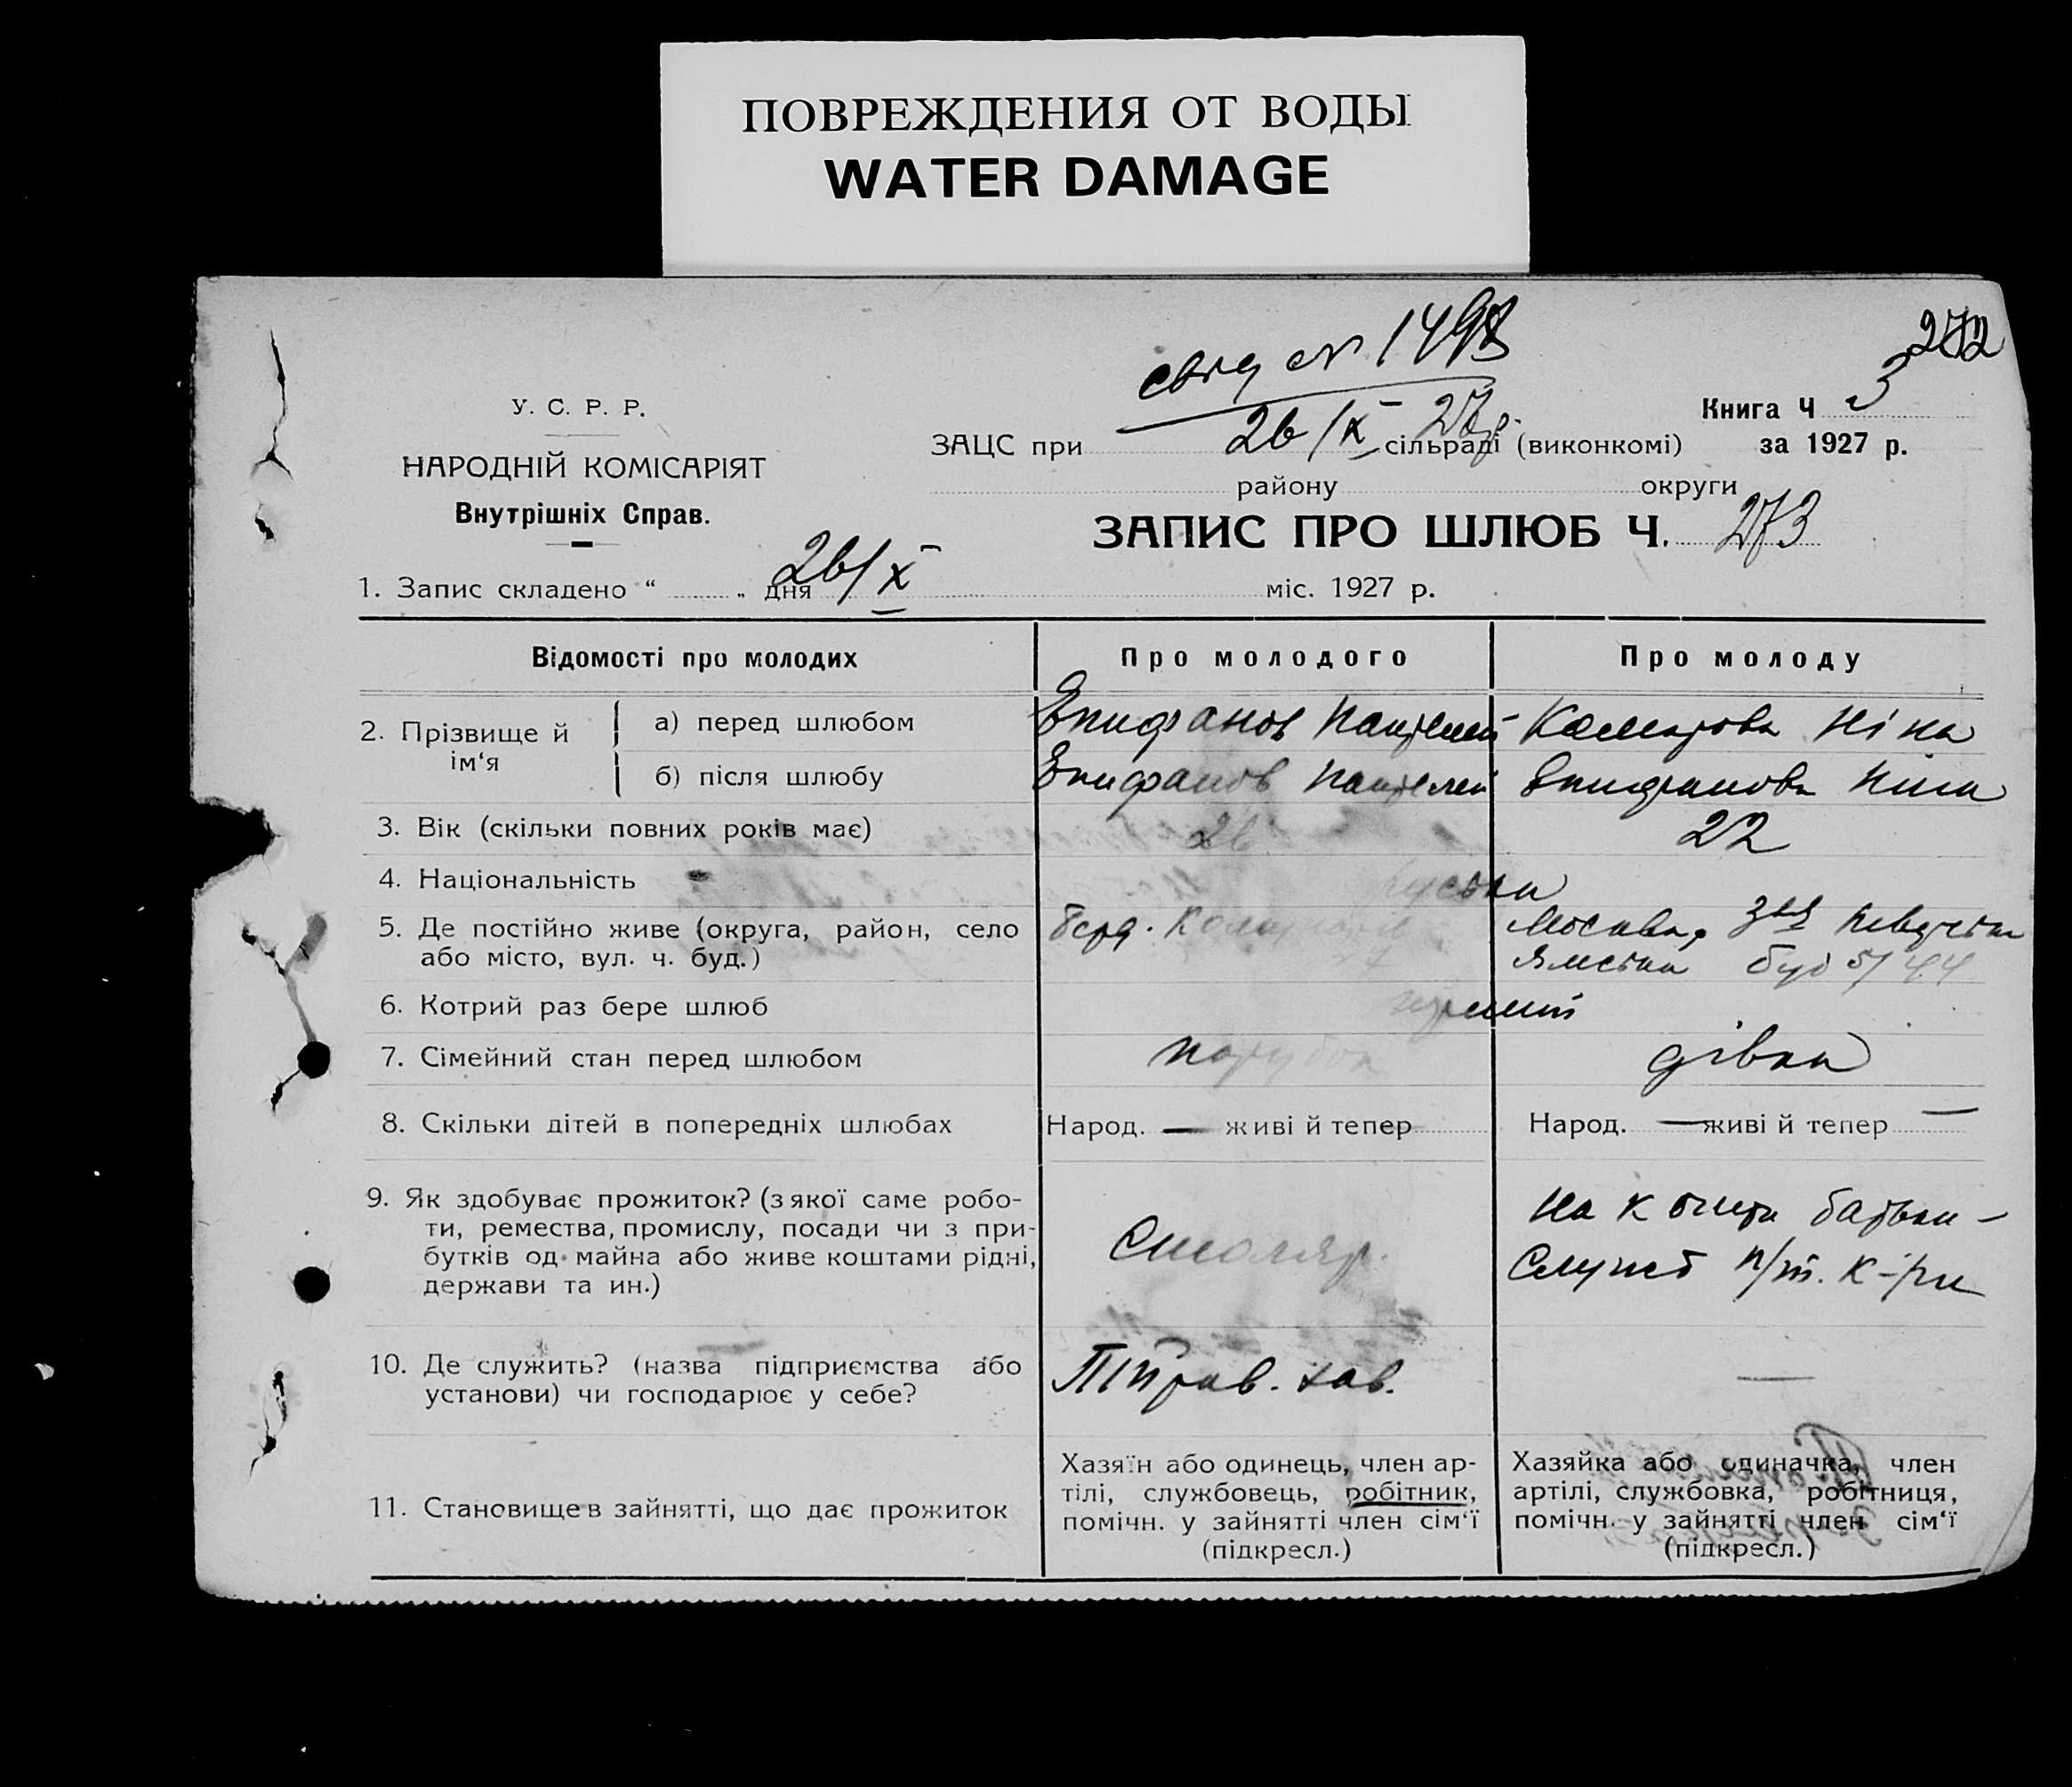 ПОВРЕЖДЕНИЯ ОТ ВОДЫ
WATER DAMAGE
272
№ 1498
26/X 27 р.
У. С. Р. Р.
НАРОДНІЙ КОМІСАРІЯТ
Внутрішніх Справ.
Книга Ч 3
за 1927 р.
ЗАЦС при сільраді (виконкомі)
району округи
ЗАПИС ПРО ШЛЮБ Ч. 273
1. Запис складено “ „ дня 26/X міс. 1927 р.
Відомості про молодих Про молодого Про молоду
2. Прізвище й ім‘я
а) перед шлюбом Епифанов Пантелей Ніна
б) після шлюбу Епифанов Пантелей Епифанова Ніна
3. Вік (скільки повних років має) 26 22
4. Національність
5. Де постійно живе (округа, район, село
або місто, вул. ч. буд.)
Москва,
Ямська буд 5/44
6. Котрий раз бере шлюб
7. Сімейний стан перед шлюбом парубок дівка
8. Скільки дітей в попередніх шлюбах Народ. — живі й тепер Народ. — живі й тепер —
9. Як здобуває прожиток? (з якої саме робо-
ти, ремества, промислу, посади чи з при-
бутків од майна або живе коштами рідні,
держави та ин.)
Столяр.
На кошти батька –
10. Де служить? (назва підприємства або
установи) чи господарює у себе?
—
11. Становище в зайнятті, що дає прожиток
Хазяїн або одинець, член ар-
тілі, службовець, робітник,
помічн. у зайнятті член сім‘ї
(підкресл.)
Хазяйка або одиначка, член
артілі, службовка, робітниця,
помічн. у зайнятті член сім‘ї
(підкресл.)